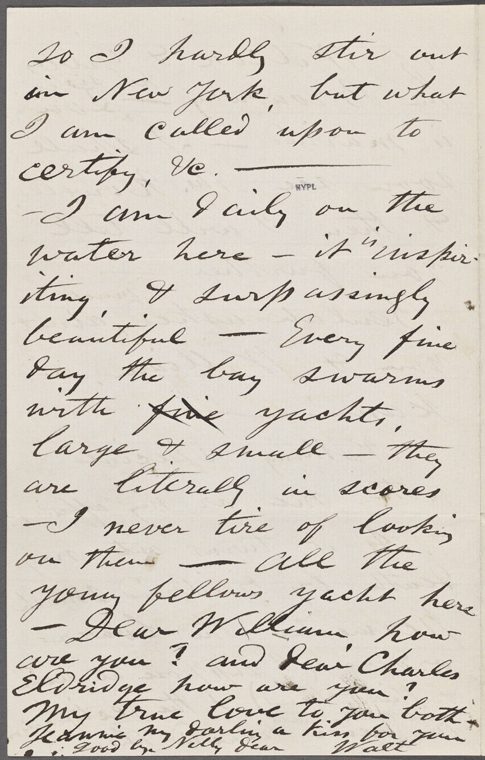 so I hardly stir out
in New York, but what
I am called upon to
certify, &c. —
NYPL
—I am daily on the
water here — it is inspir-
iting, & surpassingly
beautiful — Every fine
day the bay swarms
with fine yachts,
large & small — they
are literally in scores
—I never tire of looking
on them — all the
young fellows yacht here
— Dear William how
are you? and dear Charles
Eldridge how are you?
My true love to you both.
Jeannie my darling a kiss for you
Good bye Nelly dear Walt